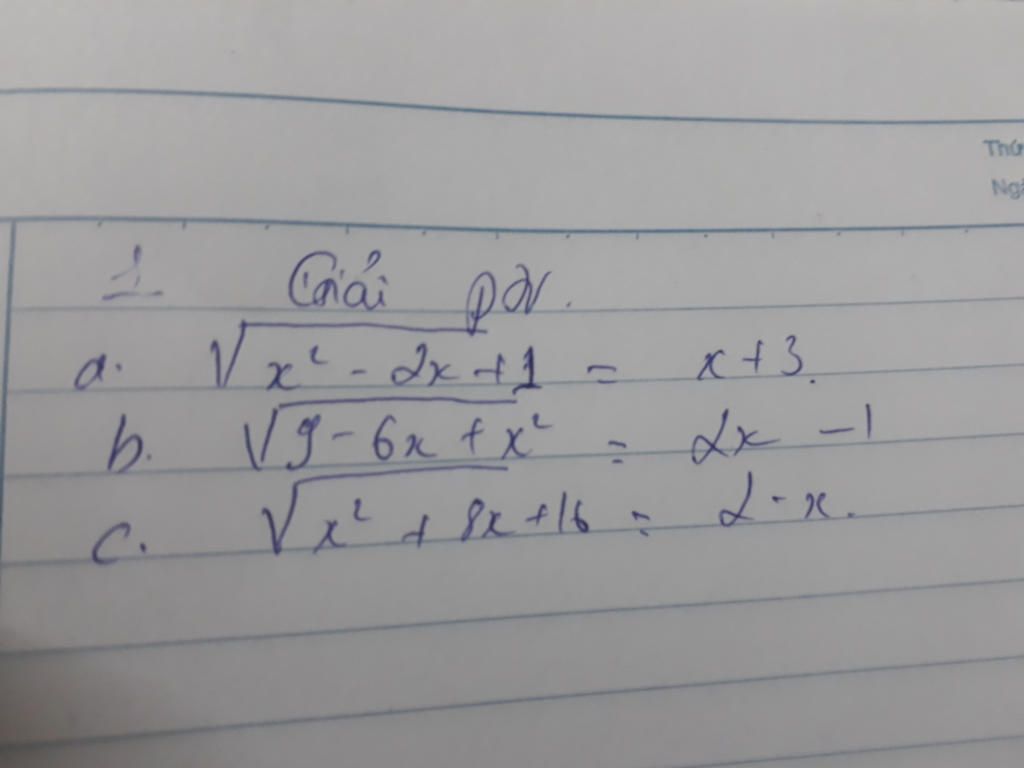 Thứ
Ngà
1 Giải pt.
a. √x² - 2x + 1 = x + 3.
b. √9 - 6x + x² = 2x - 1
c. √x² + 8x + 16 = 2 - x.